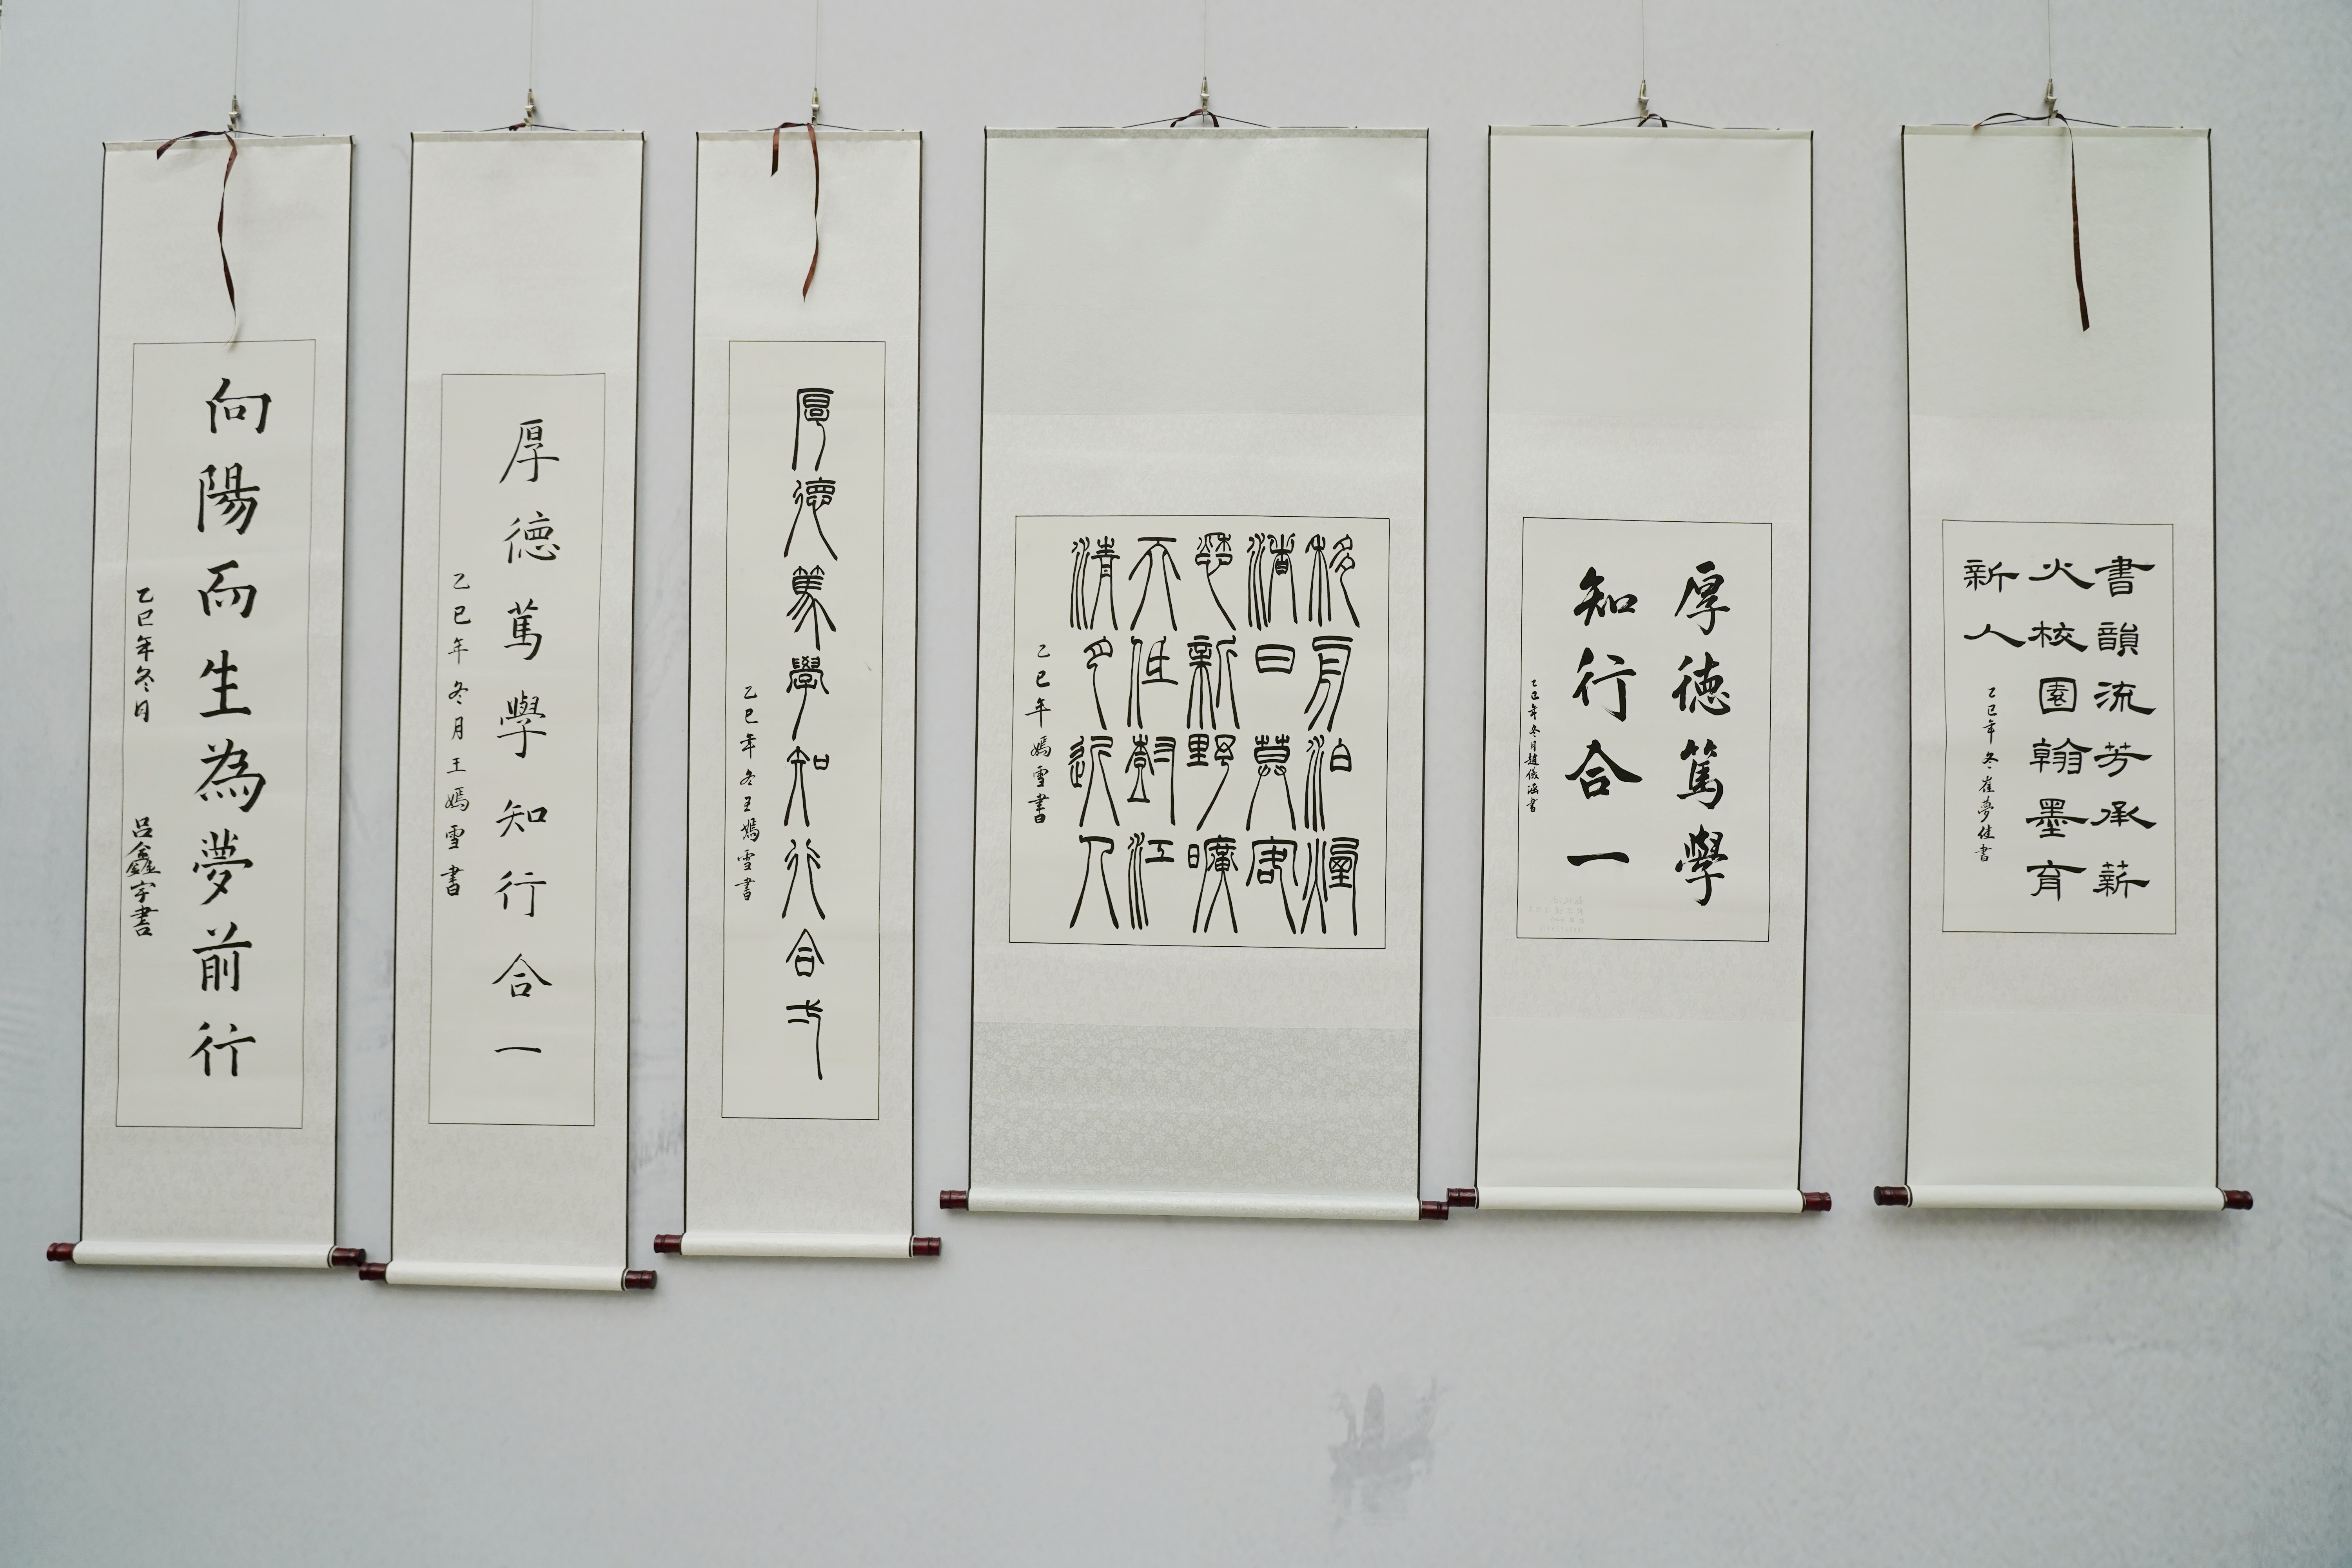 向陽而生為夢前行
乙巳年冬月 呂鑫宇書
厚德篤學知行合一
乙巳年冬月王嫣雪書
厚德篤學知行合弌
乙巳年冬王嫣雪書
移舟泊煙
渚日暮客
愁新野曠
天低樹江
清月近人
乙巳年嫣雪書
厚德篤學
知行合一
乙巳年冬月趙儀涵書
書韻流芳承薪
火校園翰墨育
新人
乙巳年冬崔夢佳書